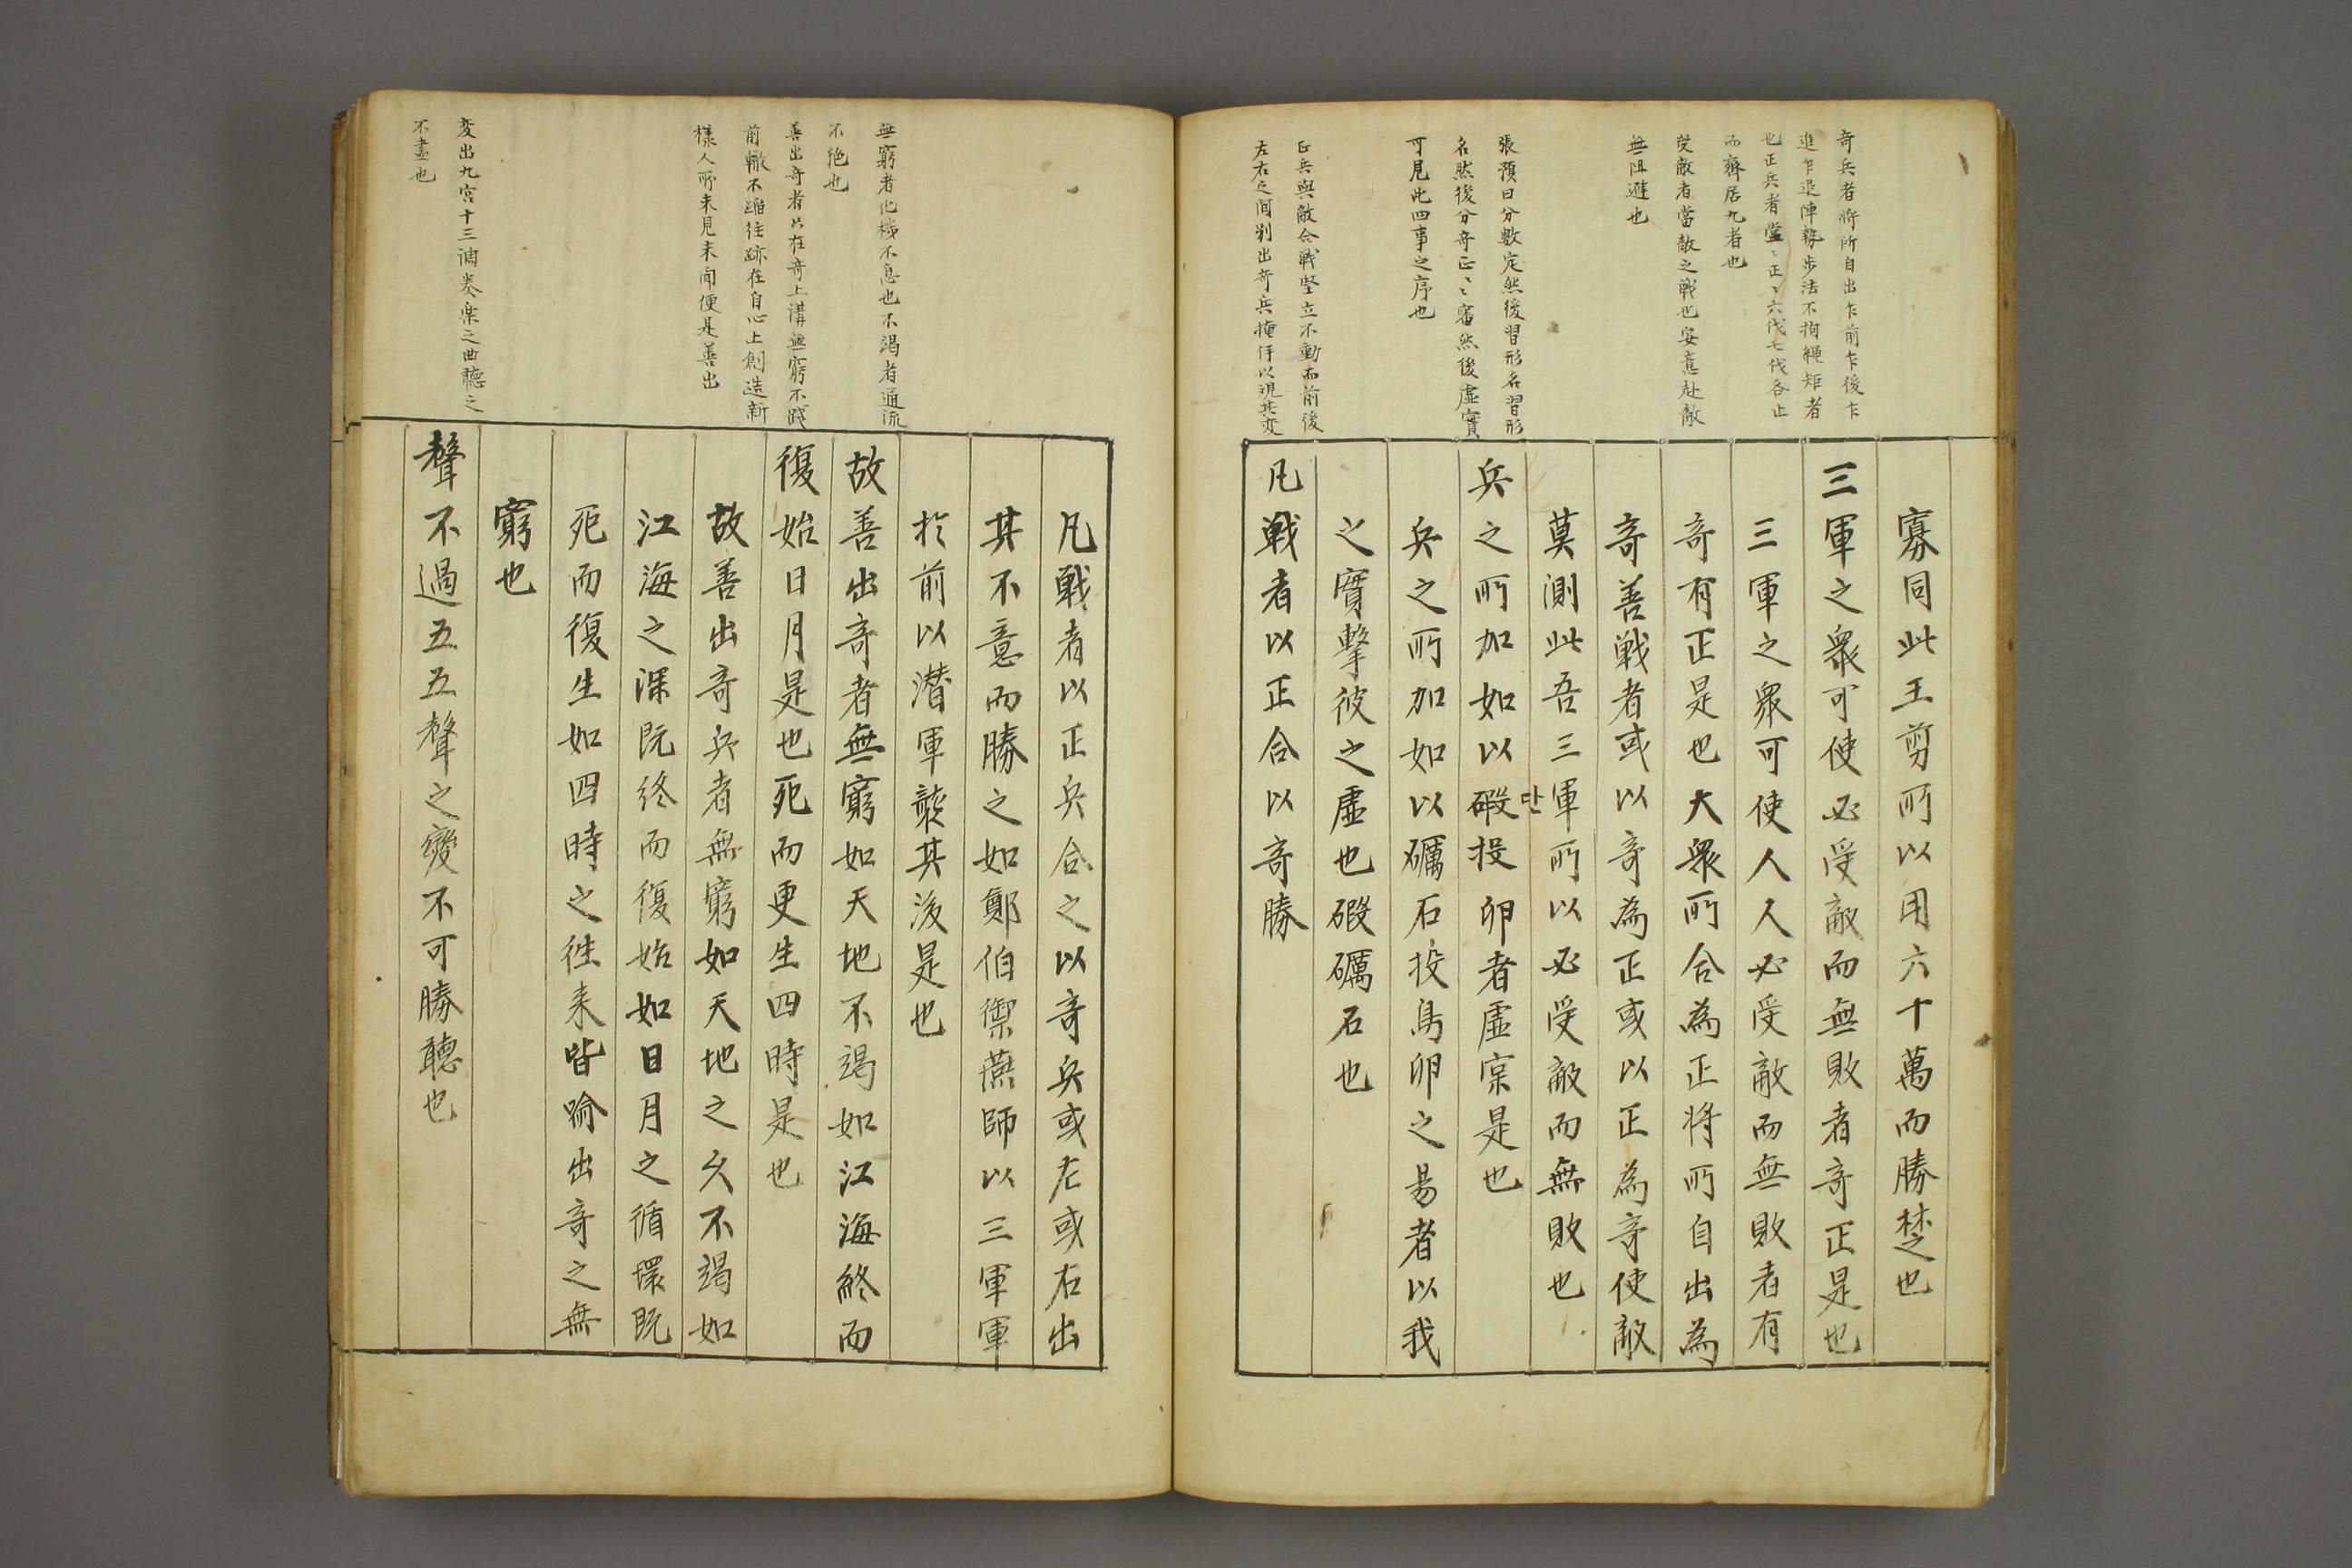 奇兵者將所自出乍前乍後乍
進乍退陣勢步法不拘繩矩者
也正兵者堂〻正〻六伐七伐各止
而齊居九者也
受敵者當敵之戰也安意赴敵
無阻避也
張預曰分數定然後習形名習形
名然後分奇正〻〻審然後虛實
可見此四事之序也
正兵與敵合戰堅立不動而前後
左右之間別出奇兵掩伏以覘其変
寡同此王剪所以用六十萬而勝楚也
三軍之衆可使必受敵而無敗者奇正是也
三軍之衆可使人人必受敵而無敗者有
奇有正是也大衆所合為正将所自出為
奇善戦者或以奇為正或以正為奇使敵
莫測此吾三軍所以必受敵而無敗也
兵之所加如以碬投卵者虛実是也
단
兵之所加如以礪石投鳥卵之易者以我
之實擊彼之虛也碬礪石也
凡戦者以正合以奇勝
無窮者化機不息也不渴者通流
不絶也
善出奇者只在奇上講無窮不踐
前轍不蹈往跡在自心上創造新
樣人所未見未聞便是善出
変出九宮十三調奏楽之曲聽之
不盡也
凡戦者以正兵合之以奇兵或左或右出
其不意而勝之如鄭伯禦燕師以三軍軍
於前以潜軍襲其後是也
故善出奇者無窮如天地不渴如江海終而
復始日月是也死而更生四時是也
故善出奇兵者無窮如天地之久不渴如
江海之深既終而復始如日月之循環既
死而復生如四時之徃来皆喻出奇之無
窮也
聲不過五五聲之變不可勝聽也